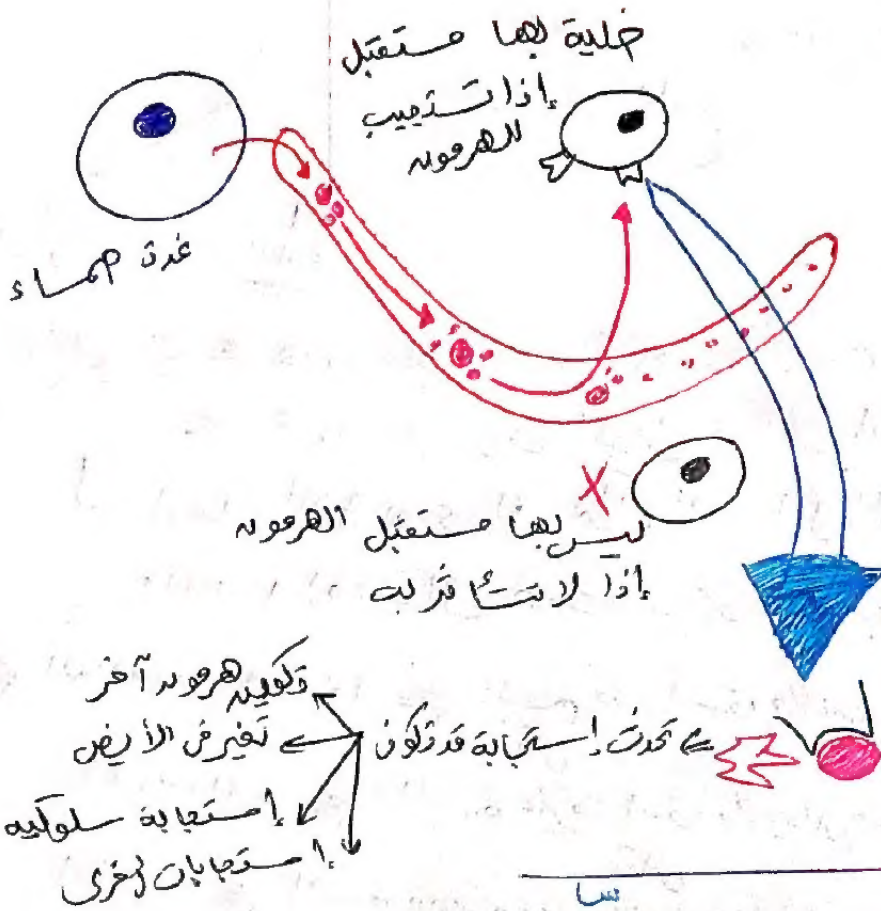 خلية بها مستقبل
إذا تستجيب
للهرمون
غدة صماء
X
ليس بها مستقبل الهرمون
إذا لا تتأثر به
تحدث إستجابة قد تكون
تكوين هرمون آخر
تغير في الأيض
إستجابة سلوكيه
إستجابات أخرى